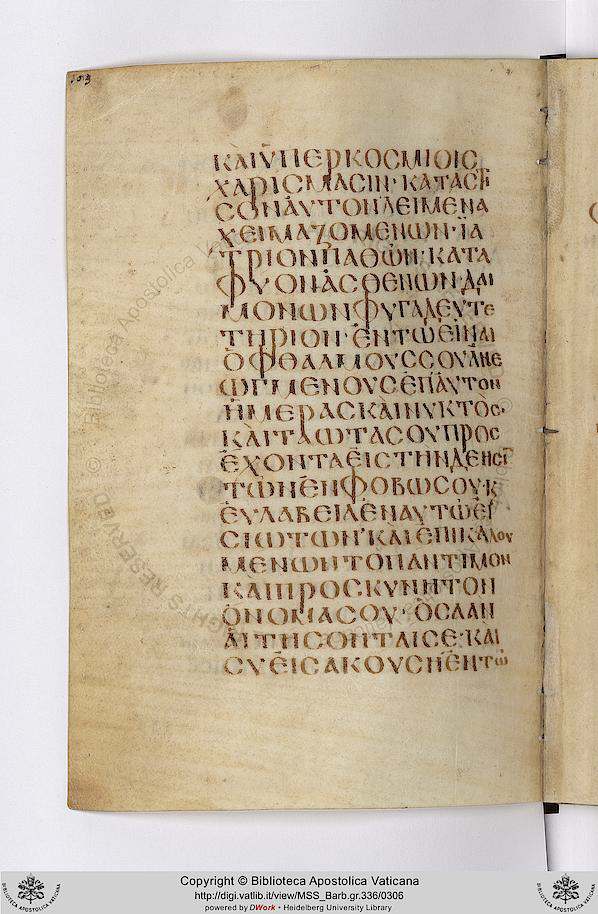 ΚΑΙ ΫΠΕΡΚΟΣΜΙΟΙΣ
ΧΑΡΙΣΜΑΣΙΝ· ΚΑΤΑΣΤΗ
ΣΟΝ ΑΥΤΟΝ ΛΕΙΜΕΝΑ
ΧΕΙΜΑΖΟΜΕΝΩΝ· ΪΑ
ΤΡΙΟΝ ΠΑΘΩΝ· ΚΑΤΑ
ΦΥΟΝ ΑΣΘΕΝΩΝ· ΔΑΙ
ΜΟΝΩΝ ΦΥΓΑΔΕΥΤΕ
ΤΗΡΙΟΝ· ΕΝ ΤΩ ΕΙΝΑΙ
ΟΦΘΑΛΜΟΥΣ ΣΟΥ ΑΝΕ
ΩΓΜΕΝΟΥΣ ΕΠ ΑΥΤΟΝ
ΗΜΕΡΑΣ ΚΑΙ ΝΥΚΤΟΣ·
ΚΑΙ ΤΑ ΩΤΑ ΣΟΥ ΠΡΟΣ
ΕΧΟΝΤΑ ΕΙΣ ΤΗΝ ΔΕΗΣΙ
ΤΩΝ ΕΝ ΦΟΒΩ ΣΟΥ Κ
ΕΥΛΑΒΕΙΑ ΕΝ ΑΥΤΩ ΕΙ
ΣΙΩΤΩΝ· ΚΑΙ ΕΠΙΚΑΛΟΥ
ΜΕΝΩΝ ΤΟ ΠΑΝΤΙΜΟΝ
ΚΑΙ ΠΡΟΣΚΥΝΗΤΟΝ
ΟΝΟΜΑ ΣΟΥ· ΟΣΑ ΑΝ
ΑΙΤΗΣΟΝΤΑΙ ΣΕ· ΚΑΙ
ΣΥ ΕΙΣΑΚΟΥΣΗ ΕΝ ΤΩ
Copyright © Biblioteca Apostolica Vaticana
http://digi.vatlib.it/view/MSS_Barb.gr.336/0306
powered by DWork • Heidelberg University Library